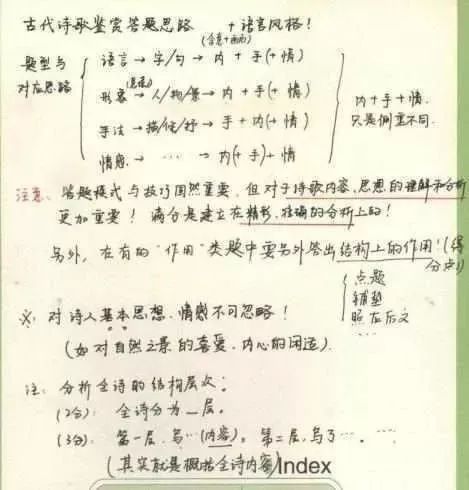 古代诗歌鉴赏答题思路 +语言风格!
(含意+画面)
题型与
对应思路
语言→字/句→内+手(+情)
形象→人/物/景→内+手(+情)
手法→描/修/抒→手+内(+情)
情感.→…→内(+手)+情
内+手+情.
只是侧重不同.
注意、答题模式与技巧固然重要,但对于诗歌内容、思想的理解和分析
更加重要!满分是建立在精彩、准确的分析上的!
另外,在有的“作用”类题中要另外答出结构上的作用!(得
分点)
点题
铺垫
照应后文
…
※:对诗人基本思想、情感不可忽略!
(如对自然之景的喜爱、内心的闲适).
注:分析全诗的结构层次:
(2分):全诗分为_层。
(3分):第一层,写…(内容)。第二层,写了….…
(其实就是概括全诗内容)
Index